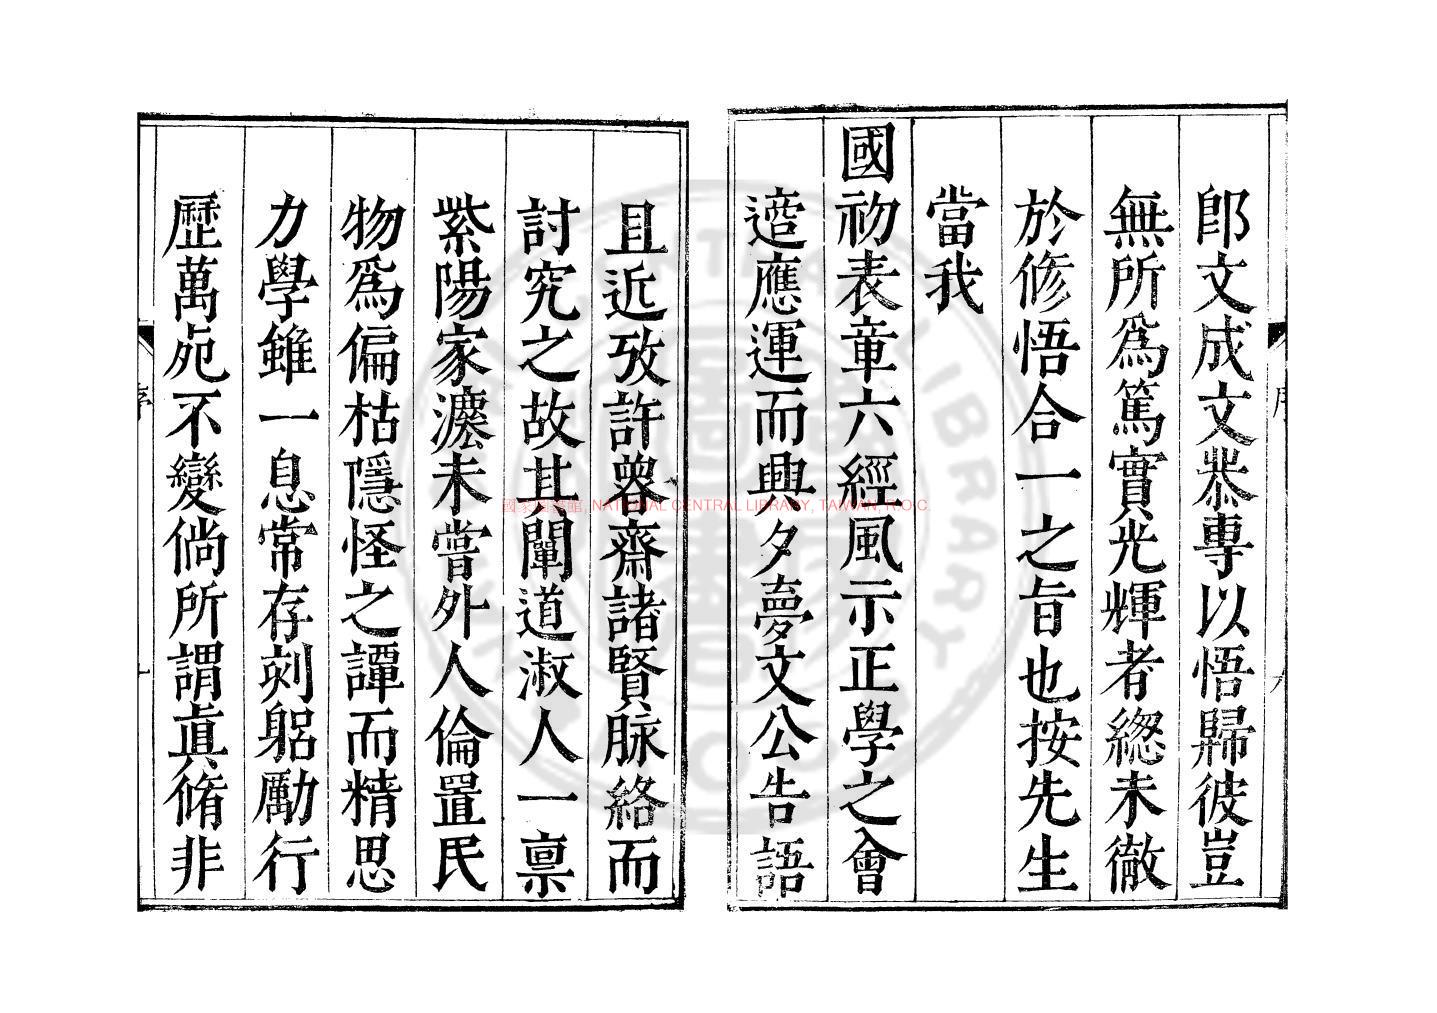 郎文成文恭專以悟歸彼豈
無所爲篤實光輝者總未徹
於修悟合一之旨也按先生
當我
國初表章六經風示正學之會
遒應運而興夕夢文公告語
且近攷許魯齋諸賢脉絡而
討究之故其闡道淑人一禀
紫陽家灋未嘗外人倫置民
物爲偏枯隱怪之譚而精思
力學雖一息常存刻躬勵行
歷萬死不變倘所謂真脩非
序
國家圖書館, NATIONAL CENTRAL LIBRARY, TAIWAN, R.O.C